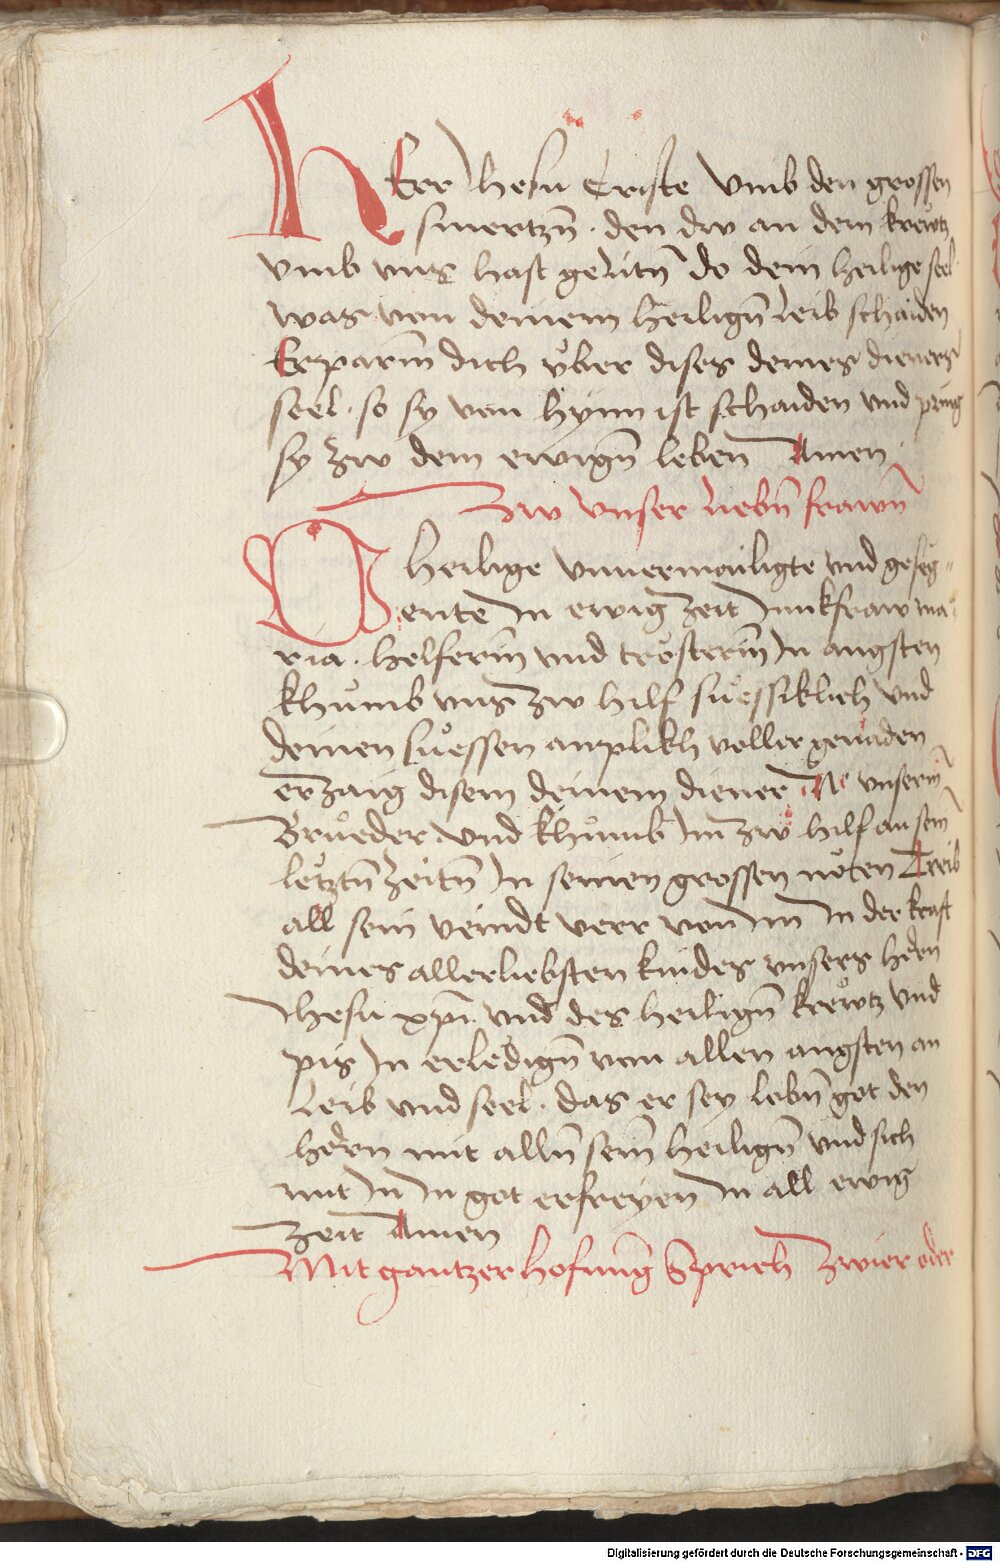 HErr Jhesu Criste Umb den grossen
smertzn̄ · den dw an dem krewtz
vmb vns hast gelitn̄ do dein heilige seel
was von deinem heilign̄ leib schaiden
Erparm̄ dich vͦber dises deines dieners
seel · so sy von hynn ist schaiden vnd pring
sy zw dem ewign̄ leben Amen
Zw vnser liebn̄ frawn̄
O heilige vnuermailigte vnd geseg„
ente In ewig zeit Junkfraw ma
ria · helferin̄ vnd trösterin̄ In angsten
khumb vns zw hilf suessiklich vnd
deinen suessen anplikh voller genaden
erzaig disem deinem diener .N. vnserm
Brueder · vnd khumb Im zw hilf an sein̄
letztn̄ zeitn̄ In seinen grossen nöten Treib
all sein veindt verr von im In der kraft
deines allerliebsten kindes vnsers hern
Jhesu xp̄i · vnd des heilign̄ krewtz vnd
pis In erledign̄ von allen angsten an
leib vnd seel · das er sey lobn̄ got den
hern mit alln̄ sein̄ heilign̄ vnd sich
mit In In got erfreyen In all ewig
zeit Amen
Mit gantzer hofnūg Sprich zwier oder
Digitalisierung gefördert durch die Deutsche Forschungsgemeinschaft - DFG